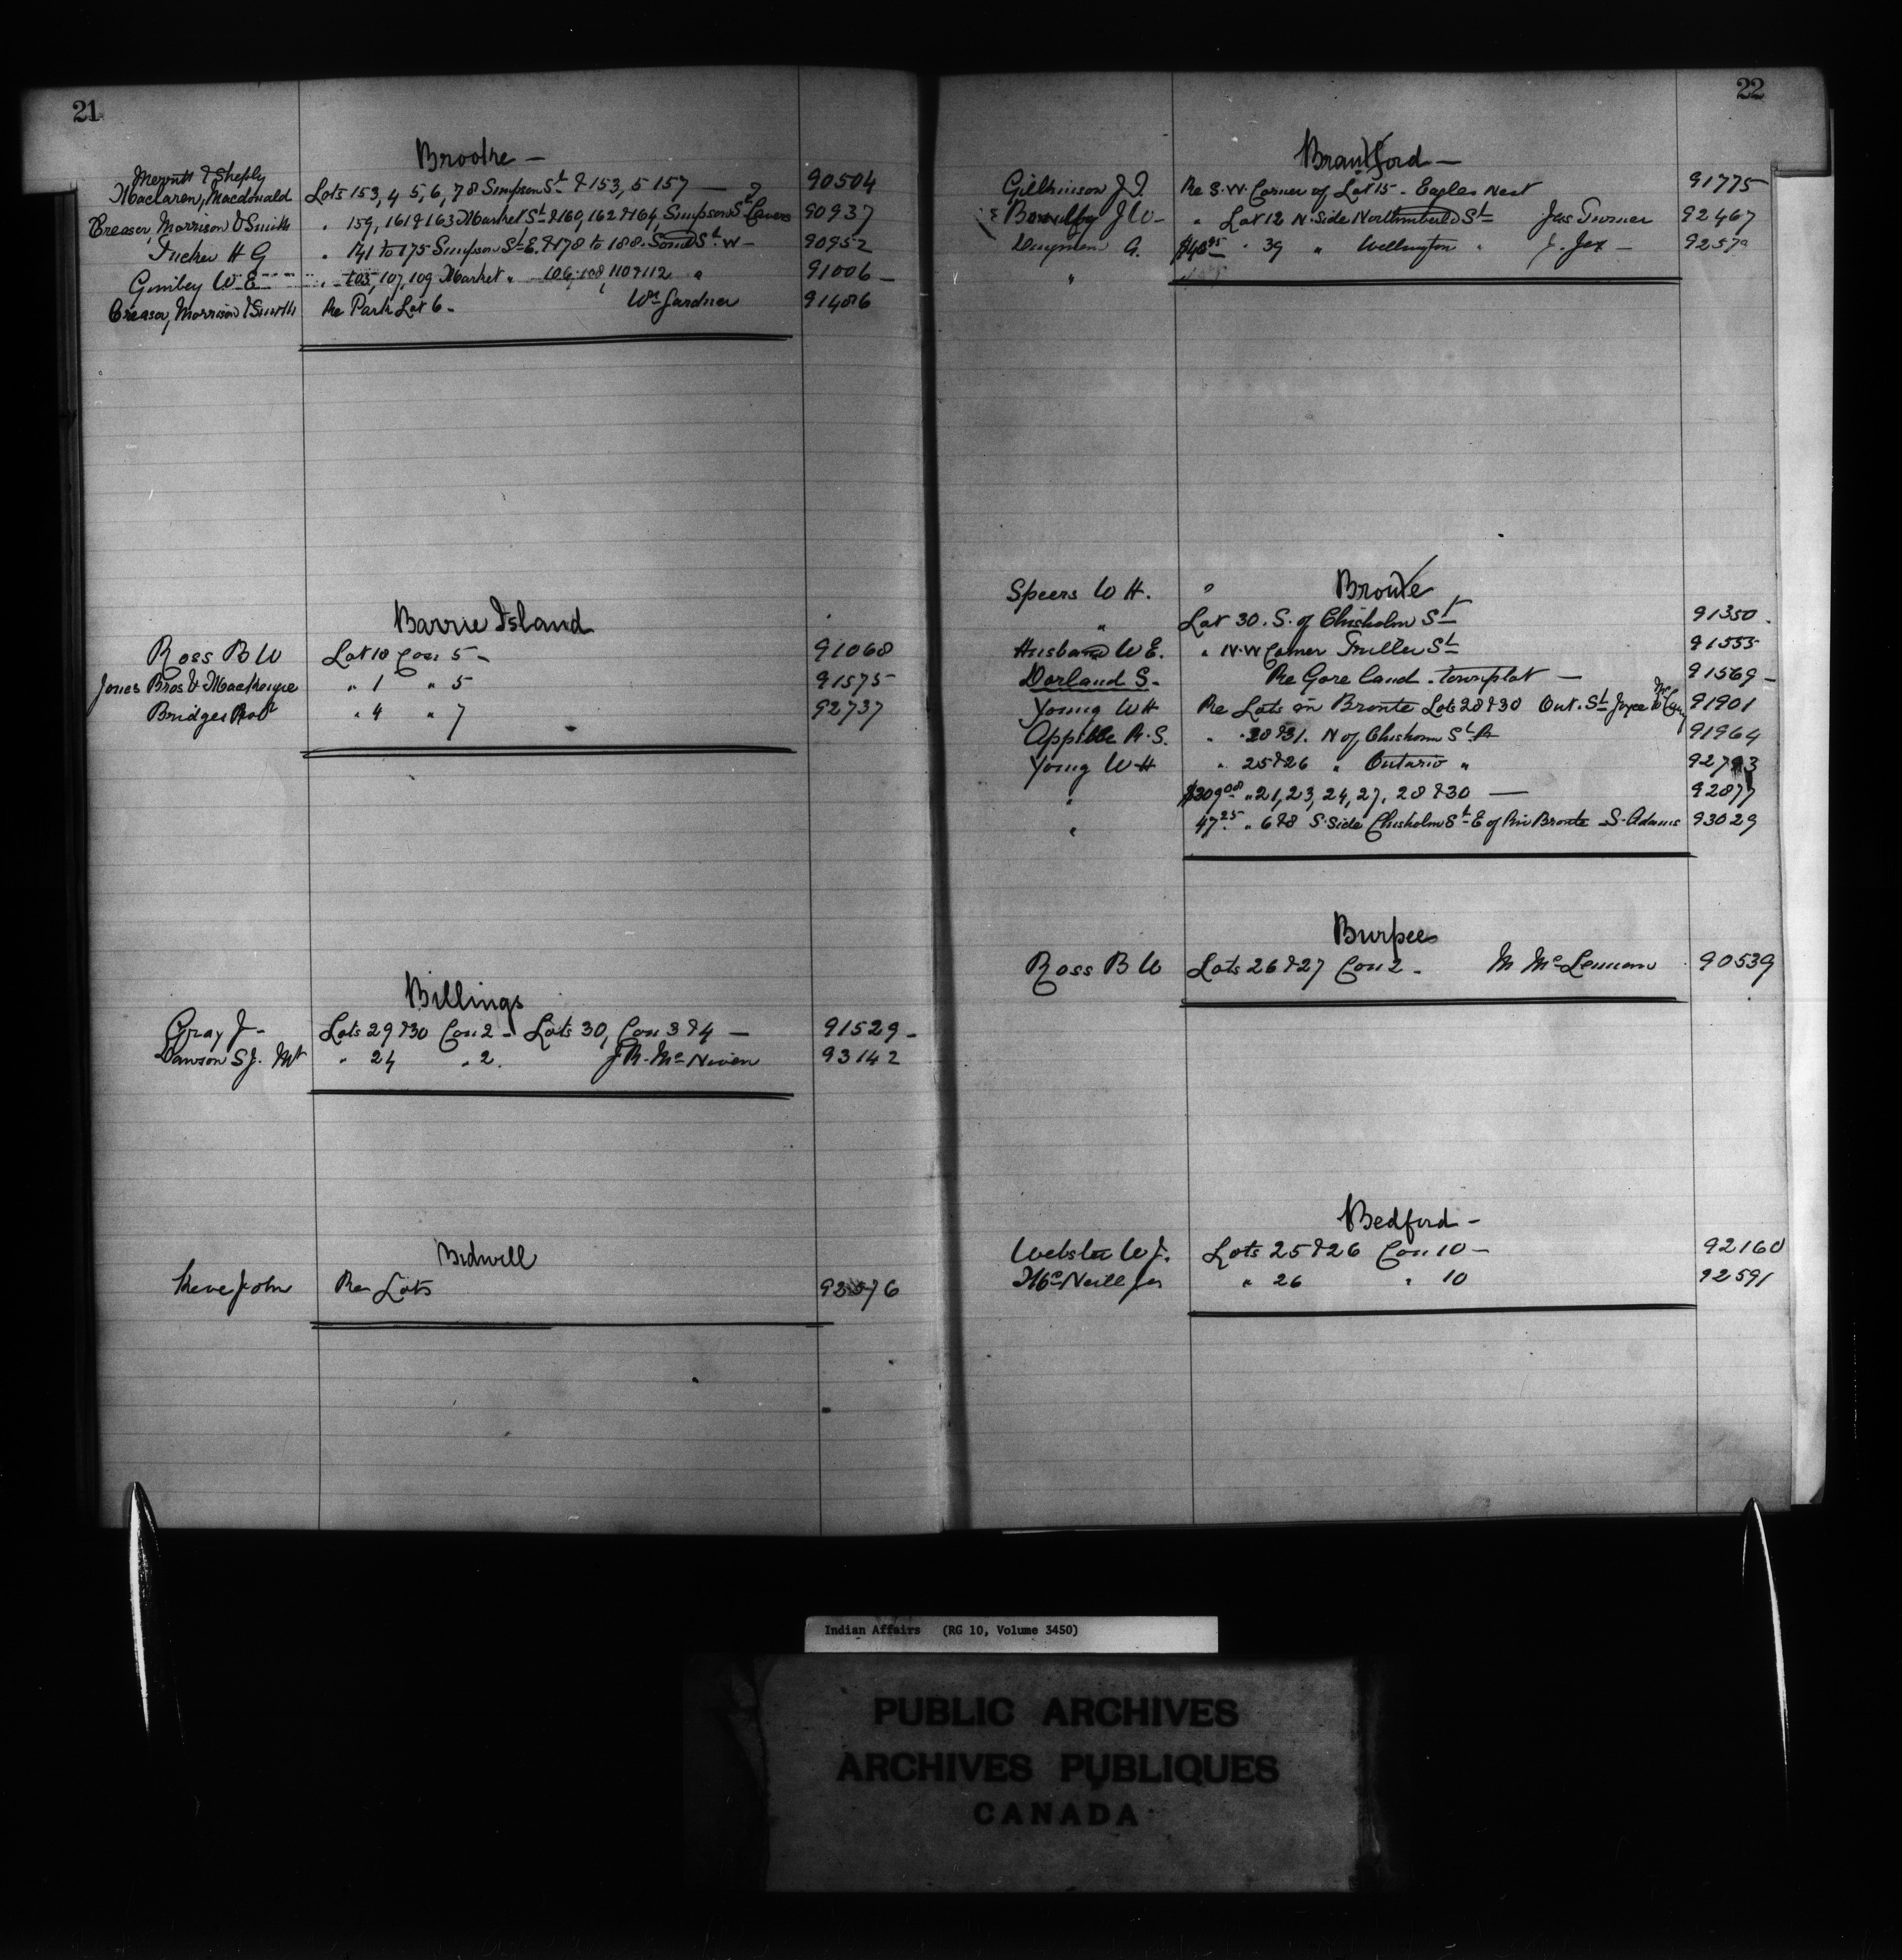 21
Brooke —
Merritt & Sheply
Maclaren, Macdonald Lots 153, 4 5, 6, 7 8 Simpson St & 153, 5 157 — 90504
Creasor, Morrison & Smith " 159, 161 & 163 Market St & 160, 162 & 164, Simpson St 90937
Tucker H G " 141 to 175 Simpson St E. & 178 to 188. St W — 90952
Gimby W E " 105, 107, 109 Market " 106, 108, 110 & 112 " 91006 —
Creasor, Morrison & Smith Re Park Lot 6 — Wm Gardner 91486
Barrie Island
Ross B W Lot 10 Con 5 — 91068
Jones Bros & Mackenzie " 1 " 5 91575
Bridges Robt " 4 " 7 92737
Billings
Gray J — Lots 29 & 30 Con 2 — Lots 30, Con 3 & 4 — 91529 —
Dawson S J. " 24 " 2. J R. McNiven 93142
Bidwell
John Re Lots 92576
22
Brantford —
Gilkinson J T. Re S. W. Corner of Lot 15 — Eagles Nest 91775
J W — " Lot 12 N. Side Northumberld St Jas Turner 92467
G. " 39 " Wellington " J. Jex — 9257
"
Speers W H. " Bronte
" Lot 30. S. of Chisholm St 91350
Husband W E. " N. W Corner St 91555
Dorland S. Re Gore land — townplot — 91569 —
Young W H Re Lots in Bronte Lots 28 & 30 Ont. St Joyce 91901
R. S. " 28 & 31. N of Chisholm St 91964
Young W H " 25 & 26 " Ontario " 92793
" $309.08 " 21, 23, 24, 27, 28 & 30 — 92877
" 47.25 " 6 & 8 S. Side Chisholm St E of Bronte S. Adams 93029
Burpee
Ross B W Lots 26 & 27 Con 2 — M McLennan 90539
Bedford —
Webster W J. Lots 25 & 26 Con 10 — 92160
McNeill Jas " 26 " 10 92591
Indian Affairs (RG 10, Volume 3450)
PUBLIC ARCHIVES
ARCHIVES PUBLIQUES
CANADA